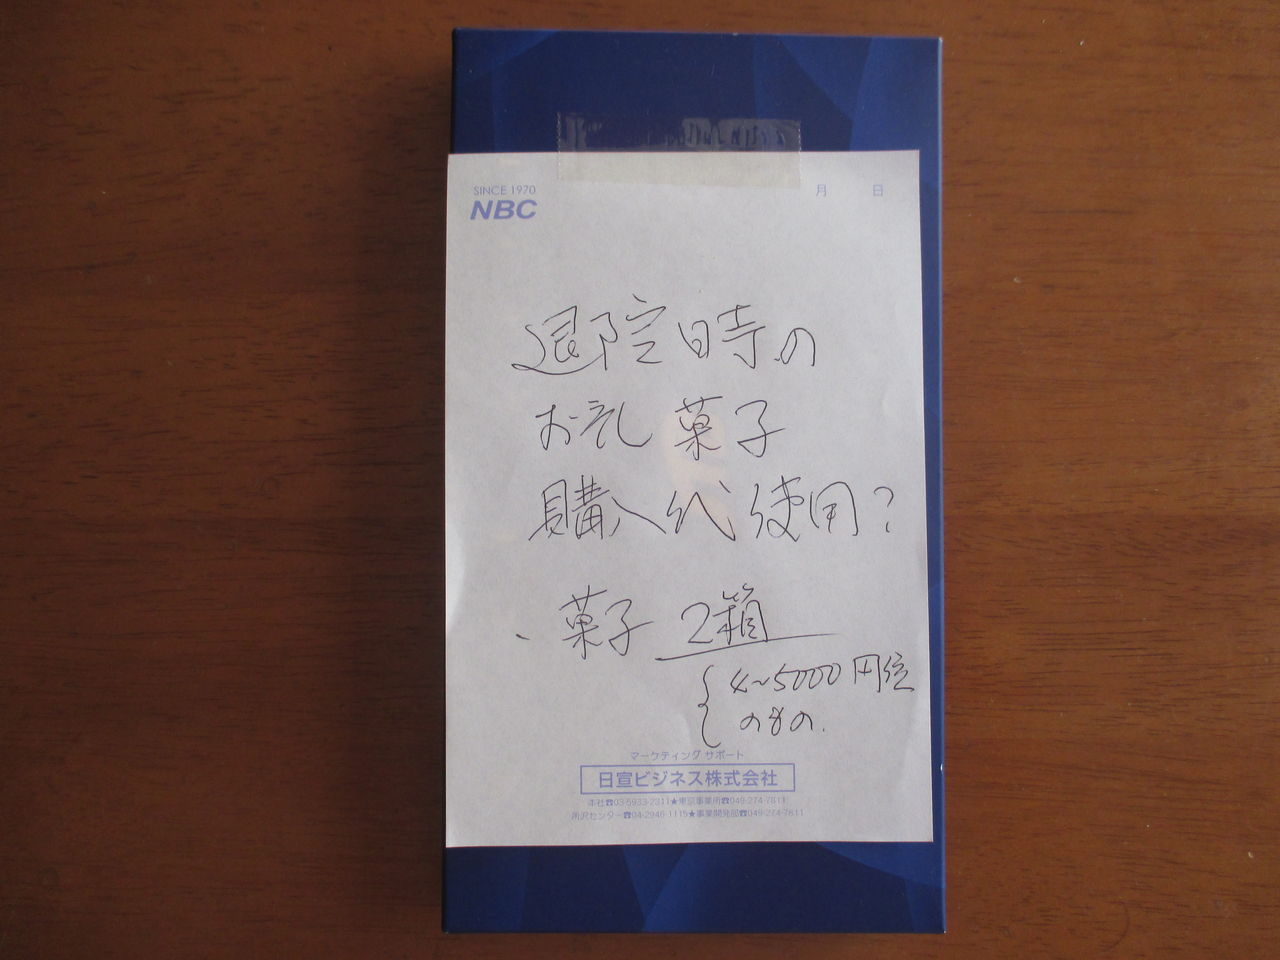 SINCE 1970
NBC
月 日
退院時の
お礼菓子
購入代使用?
・菓子 2箱
4~5000円位
のもの.
マーケティング サポート
日宣ビジネス株式会社
本社☎03-5933-2311★東京事業所☎049-274-7811
所沢センター☎04-2946-1115★事業開発部☎049-274-7811